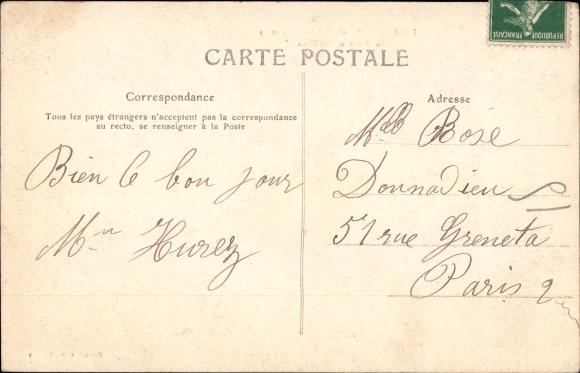 REPUBLIQUE FRANÇAISE
CARTE POSTALE
Correspondance
Tous les pays étrangers n'acceptent pas la correspondance
au recto, se renseigner à la Poste
Bien le bon jour
Mn Hurez
Adresse
Mlle Rose
Donnadieu
57 rue Greneta
Paris 2